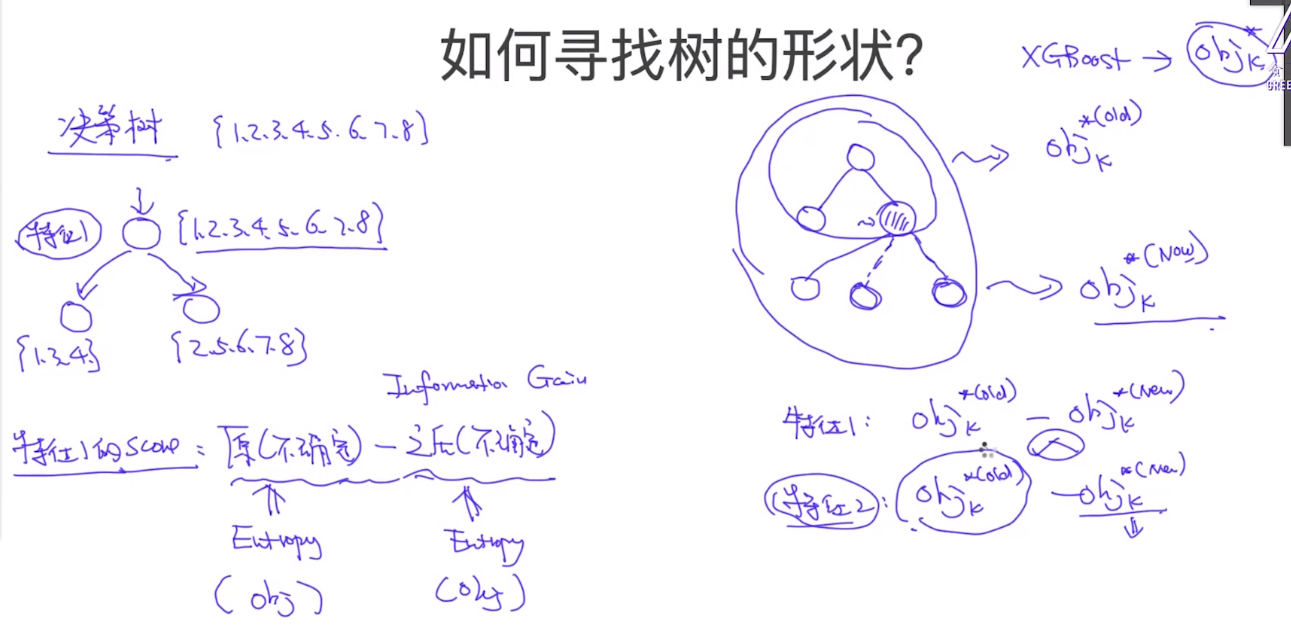 如何寻找树的形状?
XGBoost → obj_K^*
GREE
决策树 {1.2.3.4.5.6.7.8}
特征1 {1.2.3.4.5.6.7.8}
{1.3.4} {2.5.6.7.8}
Information Gain
特征1的score: 原(不确定) - 之后(不确定)
Entropy Entropy
(obj) (obj)
obj_K^*(old)
obj_K^*(Now)
特征1: obj_K^*(old) - obj_K^*(New)
特征2: obj_K^*(old) - obj_K^*(New)